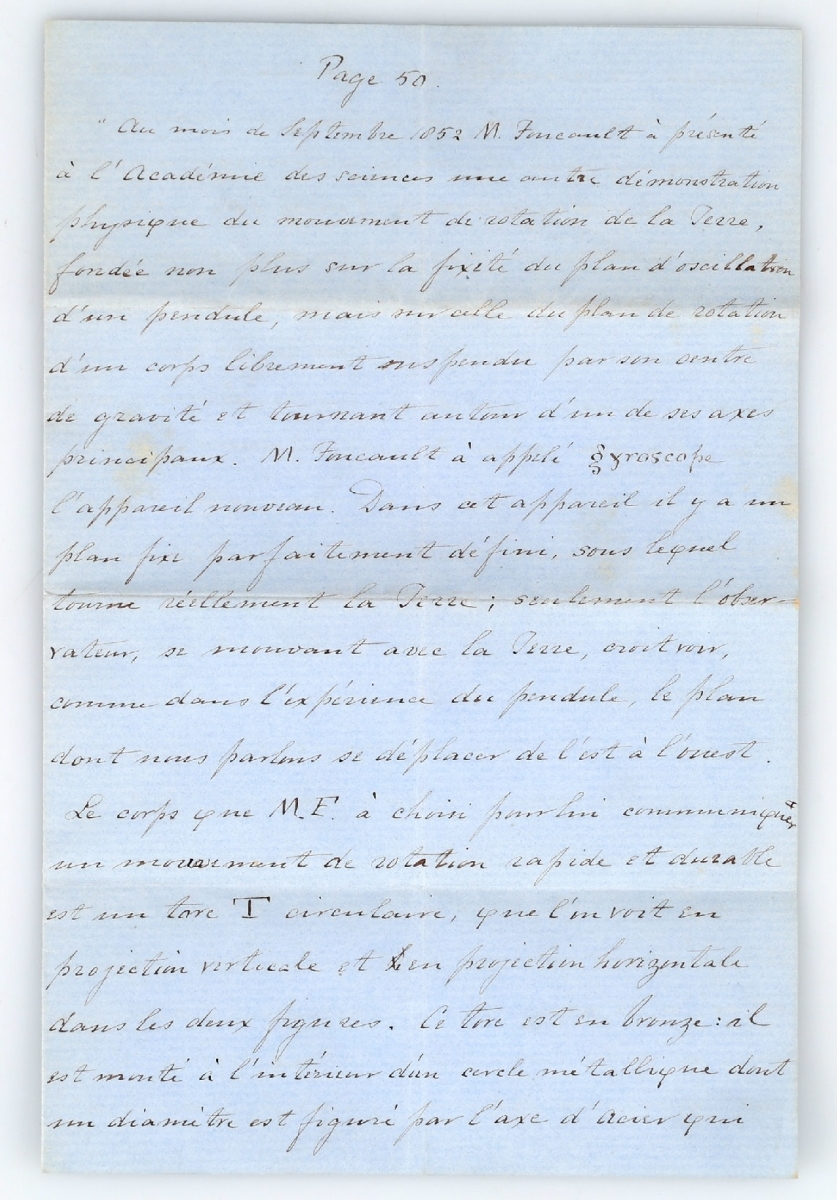 Page 50.
" Au mois de Septembre 1852 M. Foucault à présenté
à l'Académie des sciences une autre démonstration
physique du mouvament de rotation de la Terre,
fondée non plus sur la fixité du plan d'oscillation
d'un pendule, mais sur celle du plan de rotation
d'un corps librement suspendu par son centre
de gravité et tournant autour d'un de ses axes
principaux. M. Foucault à appelé gyroscope
l'appareil nouveau. Dans cet appareil il y a un
plan fixe parfaitement défini, sous lequel
tourne réellement la Terre ; seulement l'obser-
vateur, se mouvant avec la Terre, croit voir,
comme dans l'expérience du pendule, le plan
dont nous parlons se déplacer de l'est à l'ouest.
Le corps que M.F. à choisi pour lui communiquer
un mouvement de rotation rapide et durable
est un tore T circulaire, que l'on voit en
projection verticale et en projection horizontale
dans les deux figures. Ce tore est en bronze : il
est monté à l'intérieur d'un cercle métallique dont
un diamètre est figuré par l'axe d'Acier qui